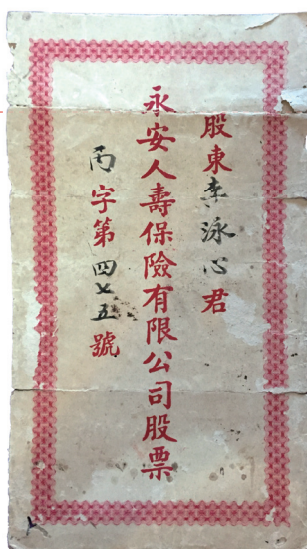 股東李泳心君
永安人壽保險有限公司股票
丙字第四七五號